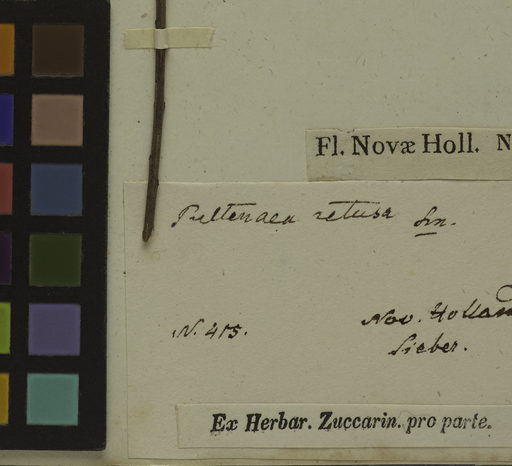 Fl. Novæ Holl. N
Pultenaea retusa Sm.
N. 415.
Nov. Hollan
Sieber.
Ex Herbar. Zuccarin. pro parte.